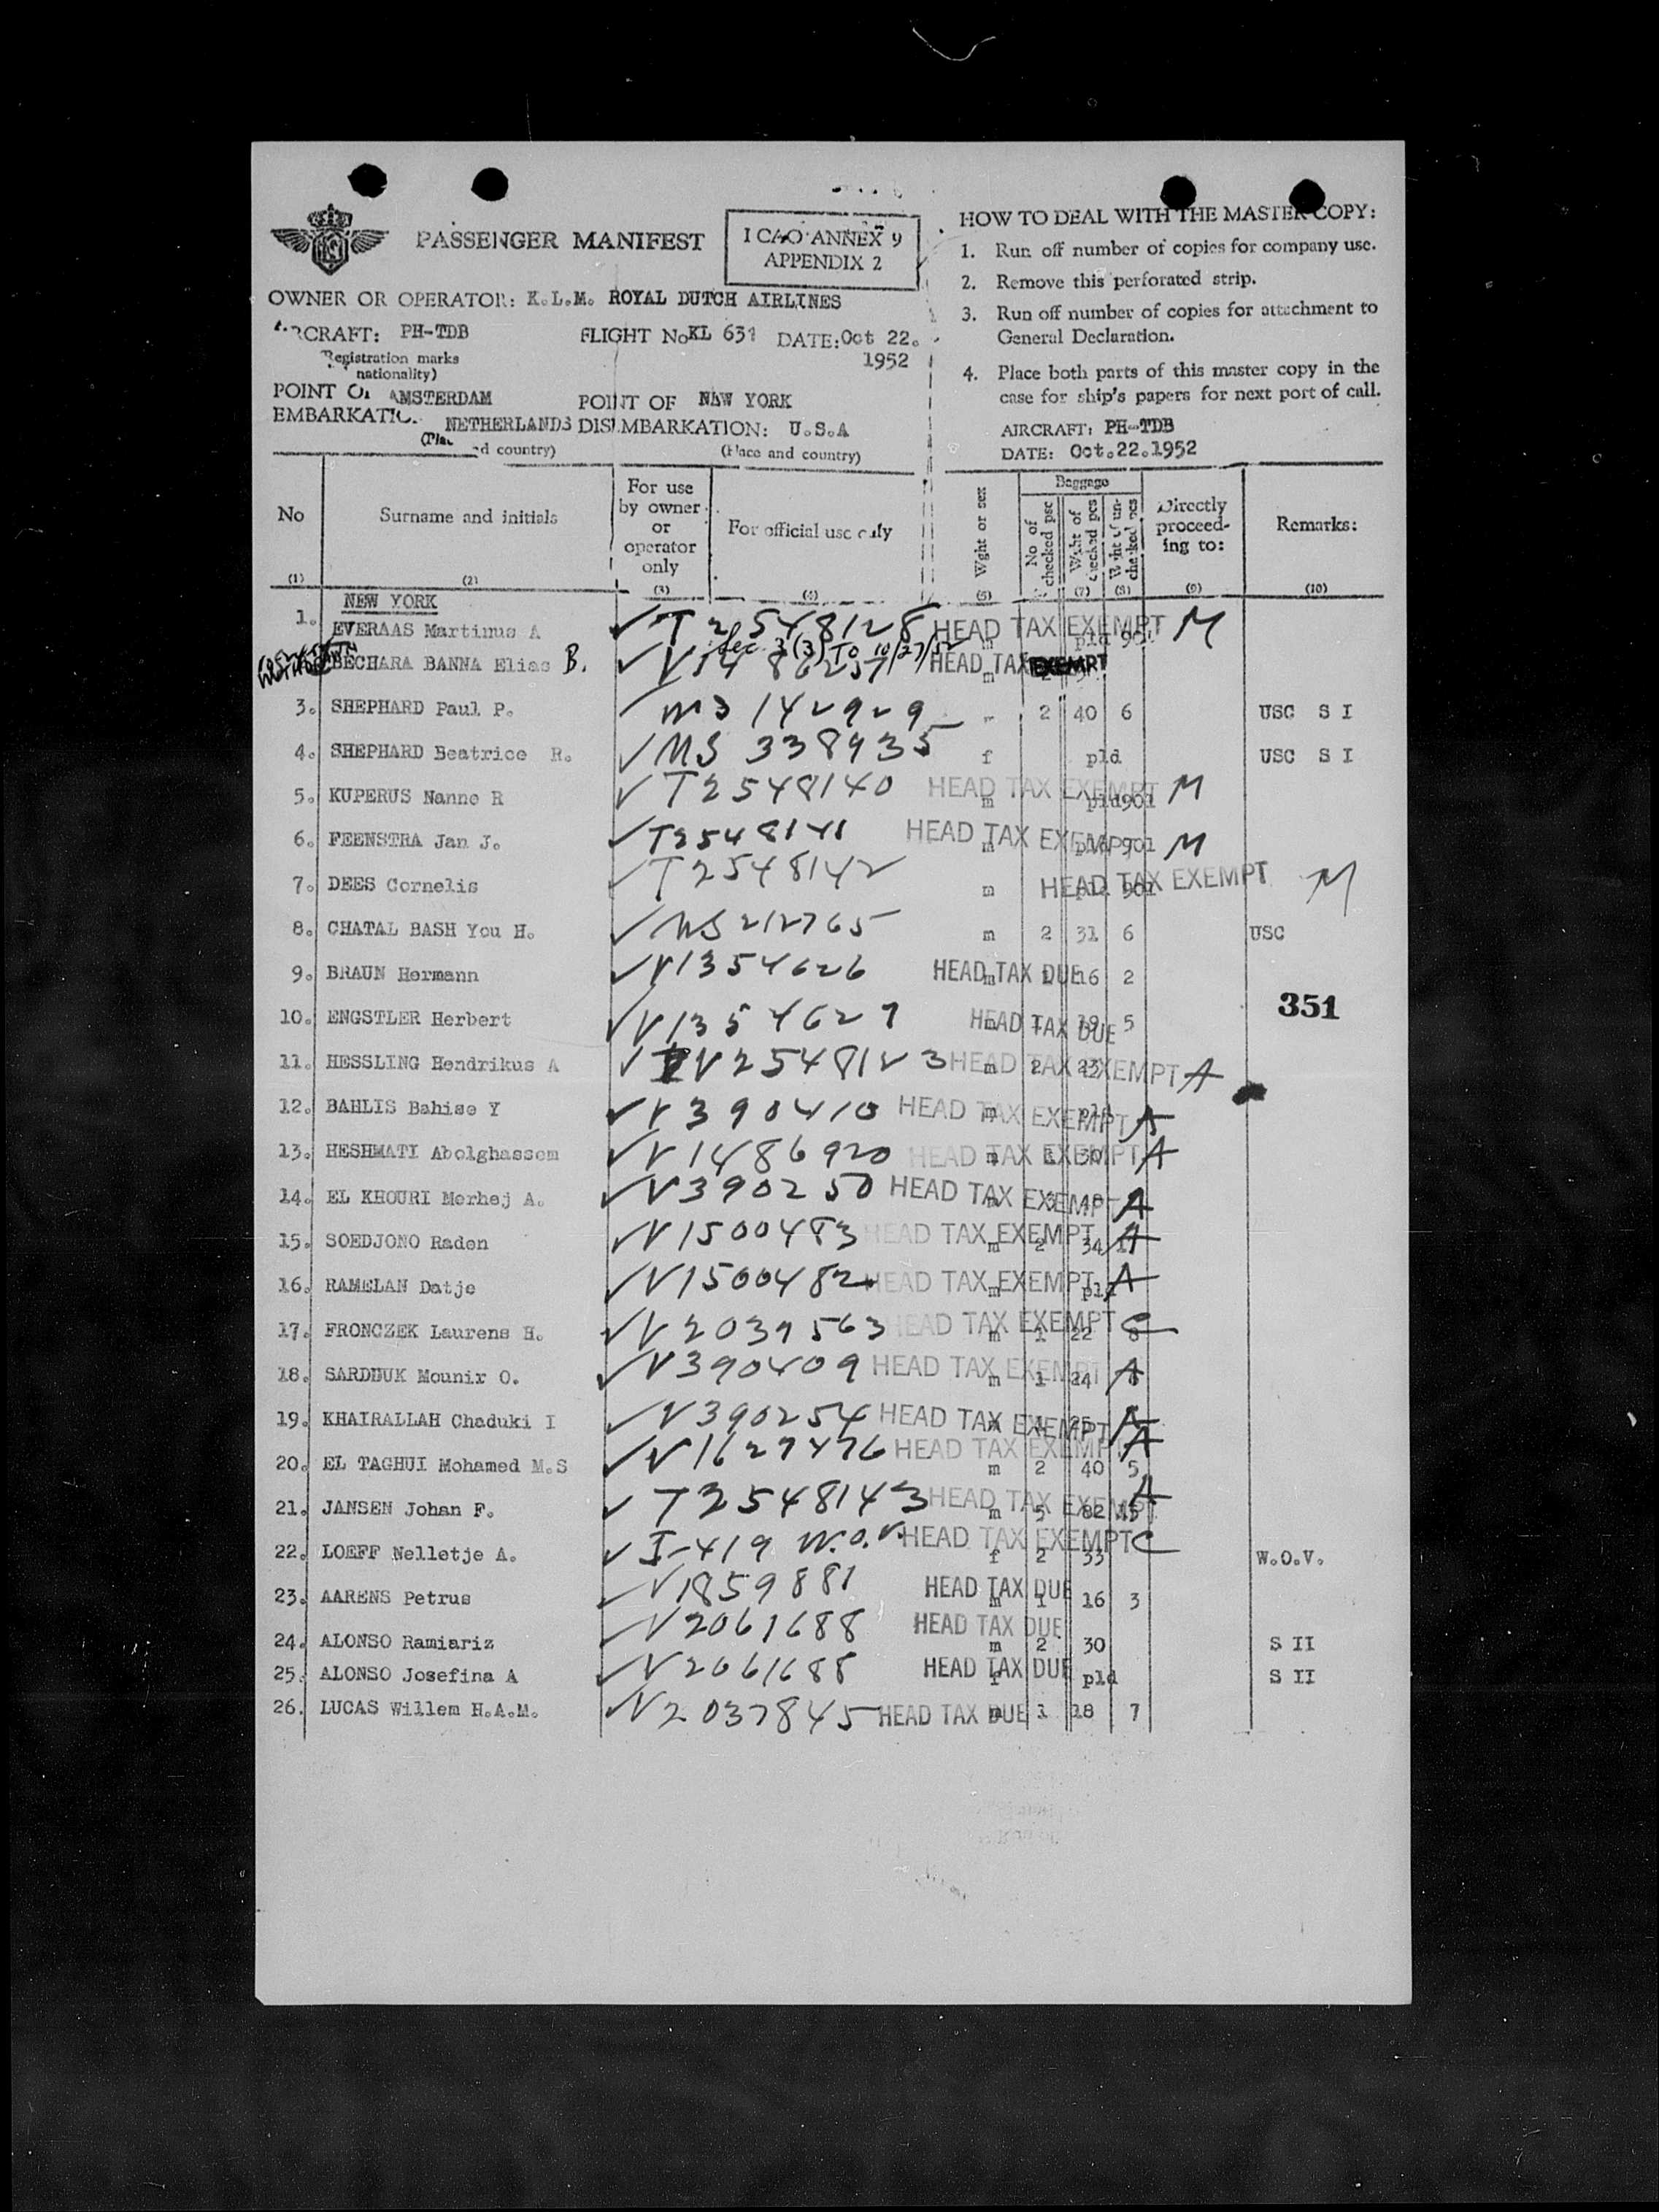 PASSENGER MANIFEST
I CAO ANNEX 9
APPENDIX 2
OWNER OR OPERATOR: K.L.M. ROYAL DUTCH AIRLINES
AIRCRAFT: PH-TDB FLIGHT No KL 631 DATE: Oct 22.
1952
Registration marks
nationality)
POINT OF AMSTERDAM POINT OF NEW YORK
EMBARKATIC. NETHERLANDS DISEMBARKATION: U.S.A
(Place and country) (Place and country)
HOW TO DEAL WITH THE MASTER COPY:
1. Run off number of copies for company use.
2. Remove this perforated strip.
3. Run off number of copies for attachment to
General Declaration.
4. Place both parts of this master copy in the
case for ship's papers for next port of call.
AIRCRAFT: PH-TDB
DATE: Oct.22.1952
No Surname and initials For use by owner or operator only For official use only Wght or sex Baggage No of checked psc Wght of checked pcs Wght of un-checked pcs Directly proceed-ing to: Remarks:
(1) (2) (3) (4) (5) (7) (8) (9) (10)
NEW YORK
1. EVERAAS Martinus A T 2548128 HEAD TAX EXEMPT m pld 901 M
Sec. 3 (3) TO 10/27/52
BECHARA BANNA Elias B. V 1486257 HEAD TAX EXEMPT m
3. SHEPHARD Paul P. MS 142929 m 2 40 6 USC S I
4. SHEPHARD Beatrice R. MS 338935 f pld USC S I
5. KUPERUS Nanno R T2548140 HEAD TAX EXEMPT m pld901 M
6. FEENSTRA Jan J. T2548141 HEAD TAX EXEMPT m pld 901 M
7. DEES Cornelis T2548142 m HEAD TAX EXEMPT 901 M
8. CHATAL BASH You H. MS 212765 m 2 31 6 USC
9. BRAUN Hermann V1354626 HEAD TAX DUE m 1 16 2
351
10. ENGSTLER Herbert V1354627 HEAD TAX DUE m 1 19 5
11. HESSLING Hendrikus A V2548123 HEAD TAX EXEMPT m 2 23 A
12. BAHLIS Bahise Y V390410 HEAD TAX EXEMPT m pld A
13. HESHMATI Abolghassem V1486920 HEAD TAX EXEMPT A
14. EL KHOURI Merhej A. V390250 HEAD TAX EXEMPT m A
15. SOEDJONO Raden V1500483 HEAD TAX EXEMPT m 2 34 A
16. RAMELAN Datje V1500482 HEAD TAX EXEMPT m pld A
17. FRONCZEK Laurens H. V2039563 HEAD TAX EXEMPT m 1 22 8 C
18. SARDUUK Mounir O. V390409 HEAD TAX EXEMPT m 1 24 A
19. KHAIRALLAH Chaduki I V390254 HEAD TAX EXEMPT m 25 A
20. EL TAGHUI Mohamed M.S V1627476 HEAD TAX EXEMPT m 2 40 5 A
21. JANSEN Johan F. T2548143 HEAD TAX EXEMPT m 5 82 15 A
22. LOEFF Nelletje A. I-419 W.O.V. HEAD TAX EXEMPT f 2 33 C W.O.V.
23. AARENS Petrus V1859881 HEAD TAX DUE m 1 16 3
24. ALONSO Ramiariz V2061688 HEAD TAX DUE m 2 30 S II
25. ALONSO Josefina A V2061688 HEAD TAX DUE f pld S II
26. LUCAS Willem H.A.M. V2037845 HEAD TAX DUE m 1 18 7